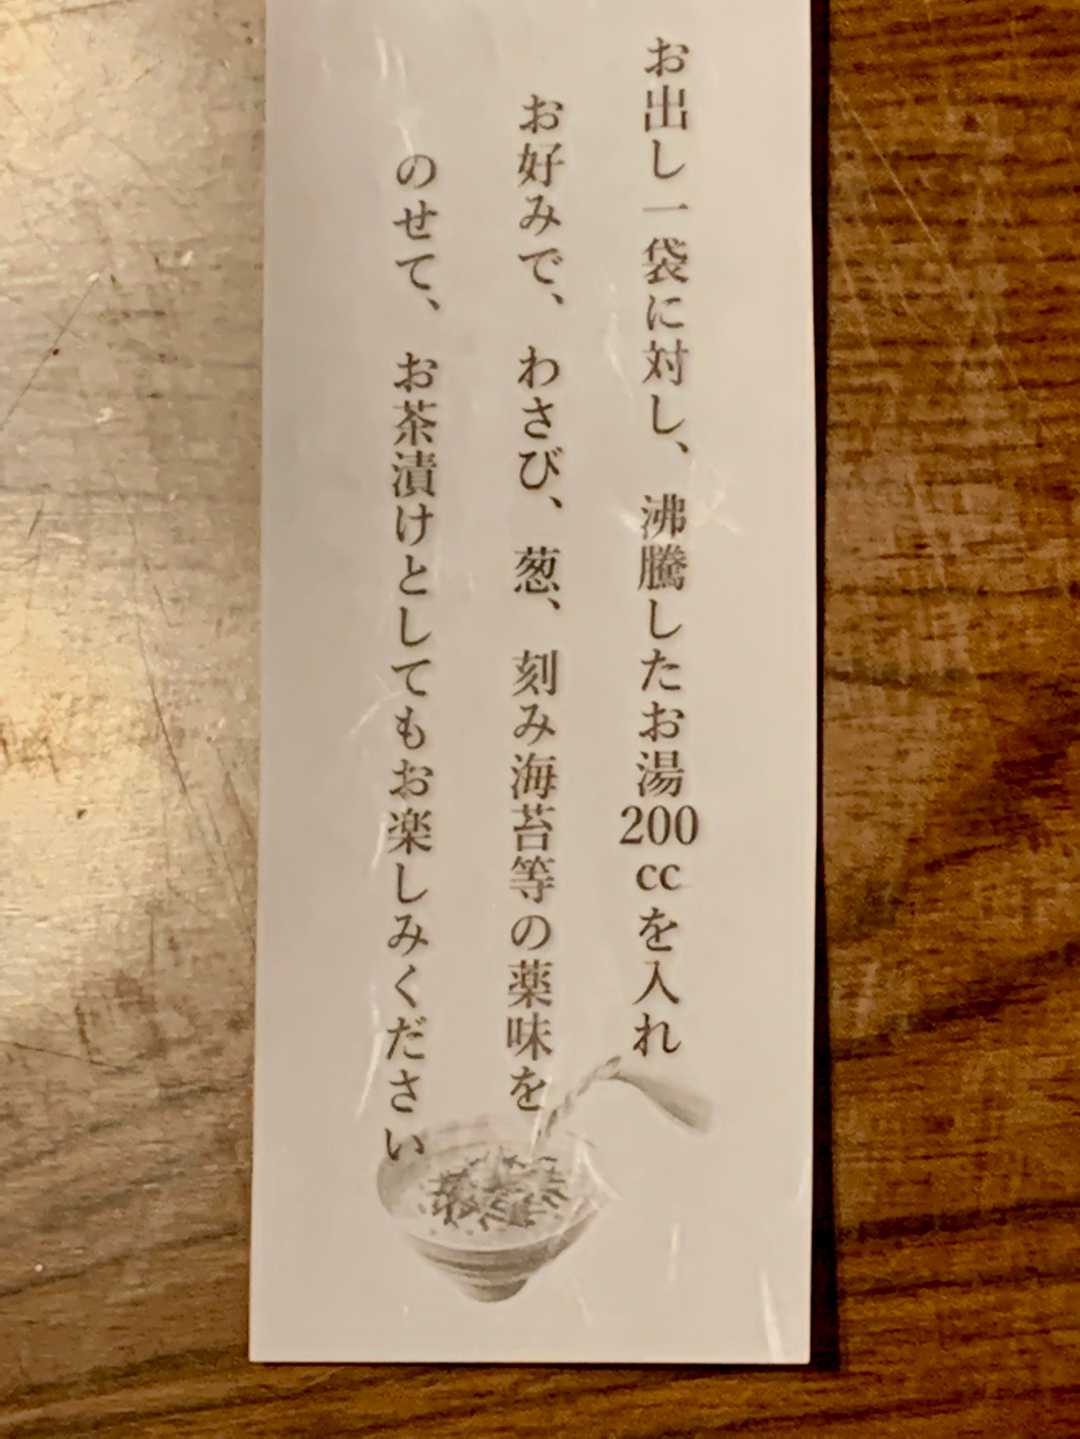 お出し一袋に対し、沸騰したお湯200ccを入れ
お好みで、わさび、葱、刻み海苔等の薬味を
のせて、お茶漬けとしてもお楽しみください